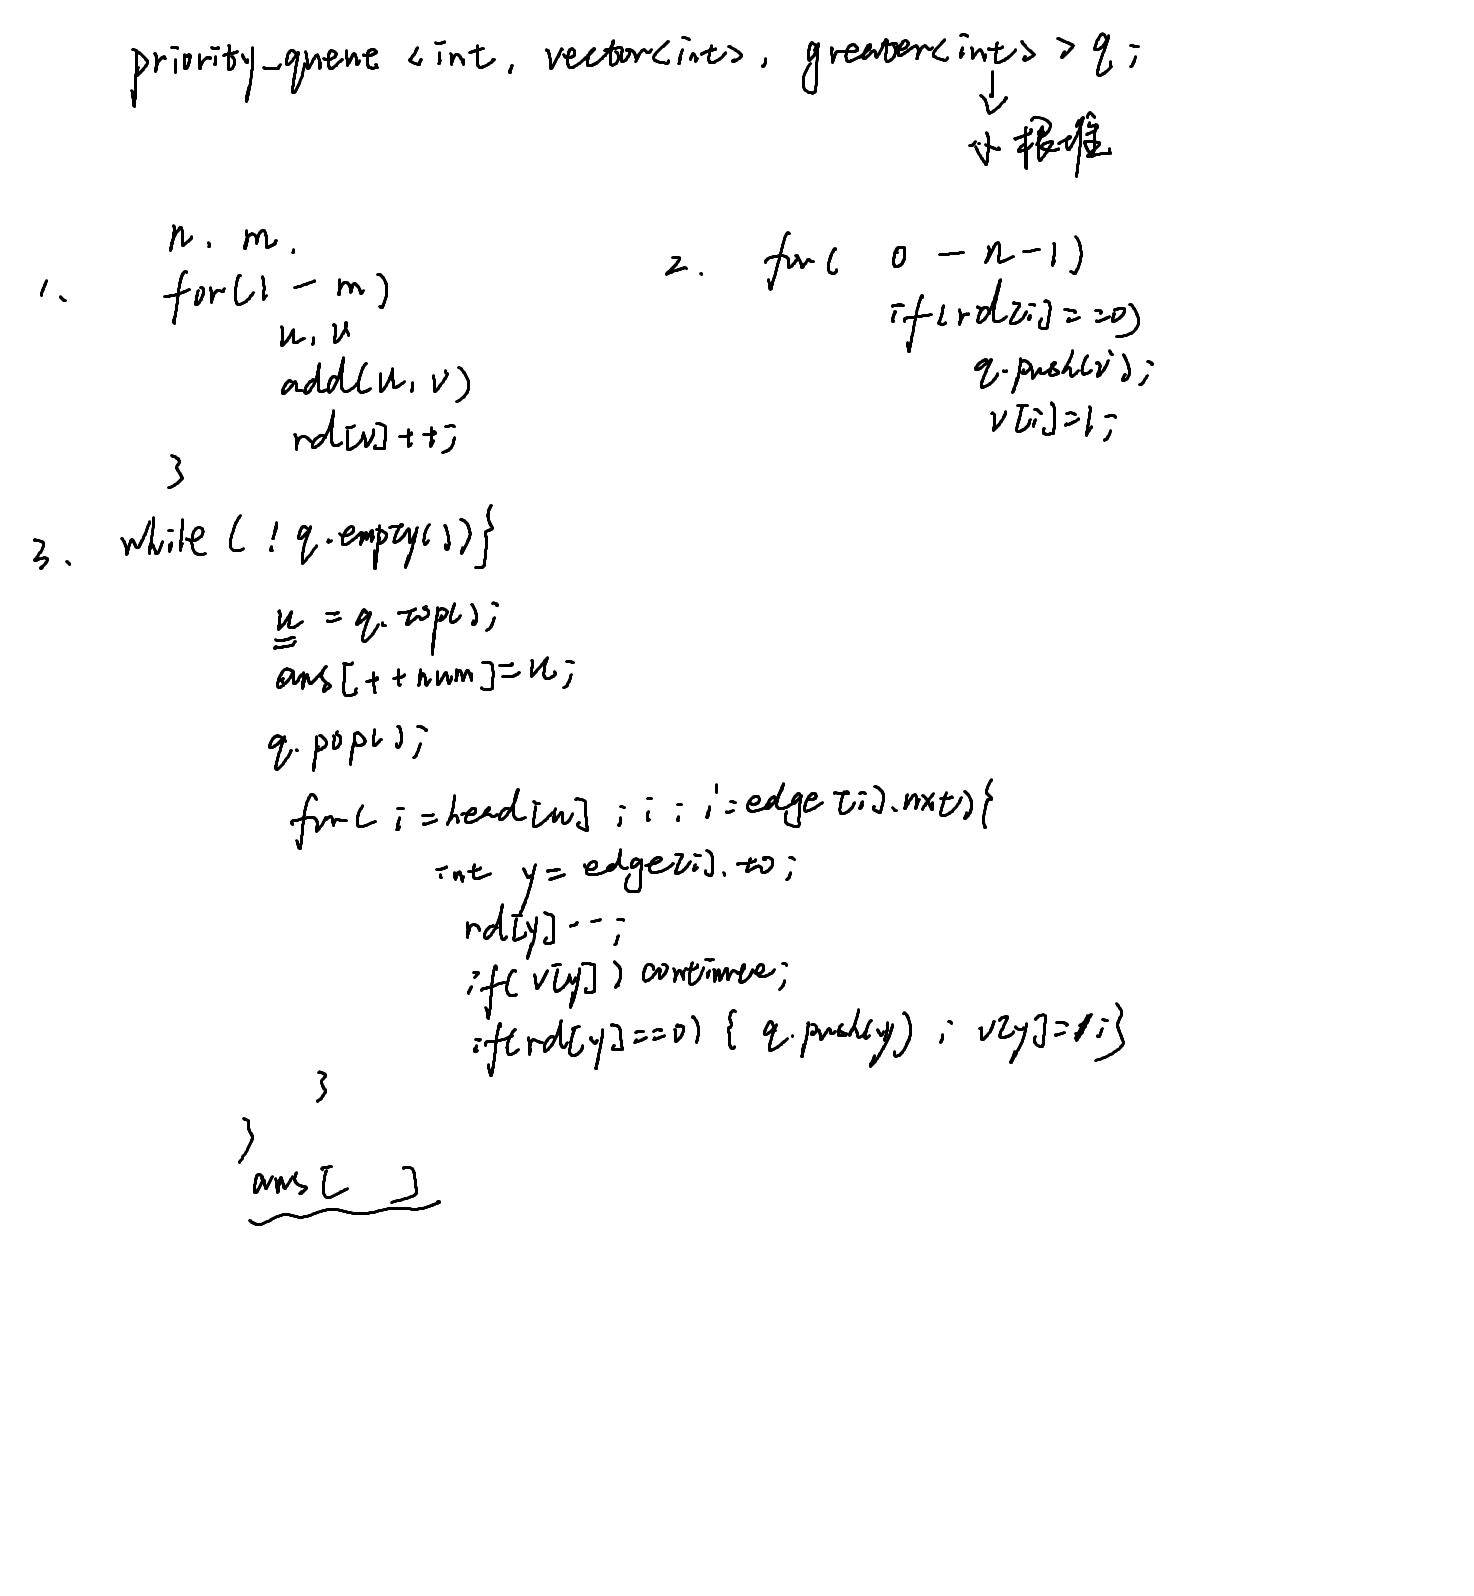 priority_queue <int, vector<int>, greater<int> > q;
小根堆
1.
n, m,
for(1 - m)
u, u
add(u, v)
rd[v]++;
}
2. for( 0 - n-1)
if(rd[i]==0)
q.push(i);
v[i]=1;
3. while(!q.empty()){
u = q.top();
ans[++num]=u;
q.pop();
for( i=head[u]; i; i=edge[i].nxt){
int y= edge[i].to;
rd[y]--;
if(v[y]) continue;
if(rd[y]==0) { q.push(y); v[y]=1;}
}
}
ans[ ]